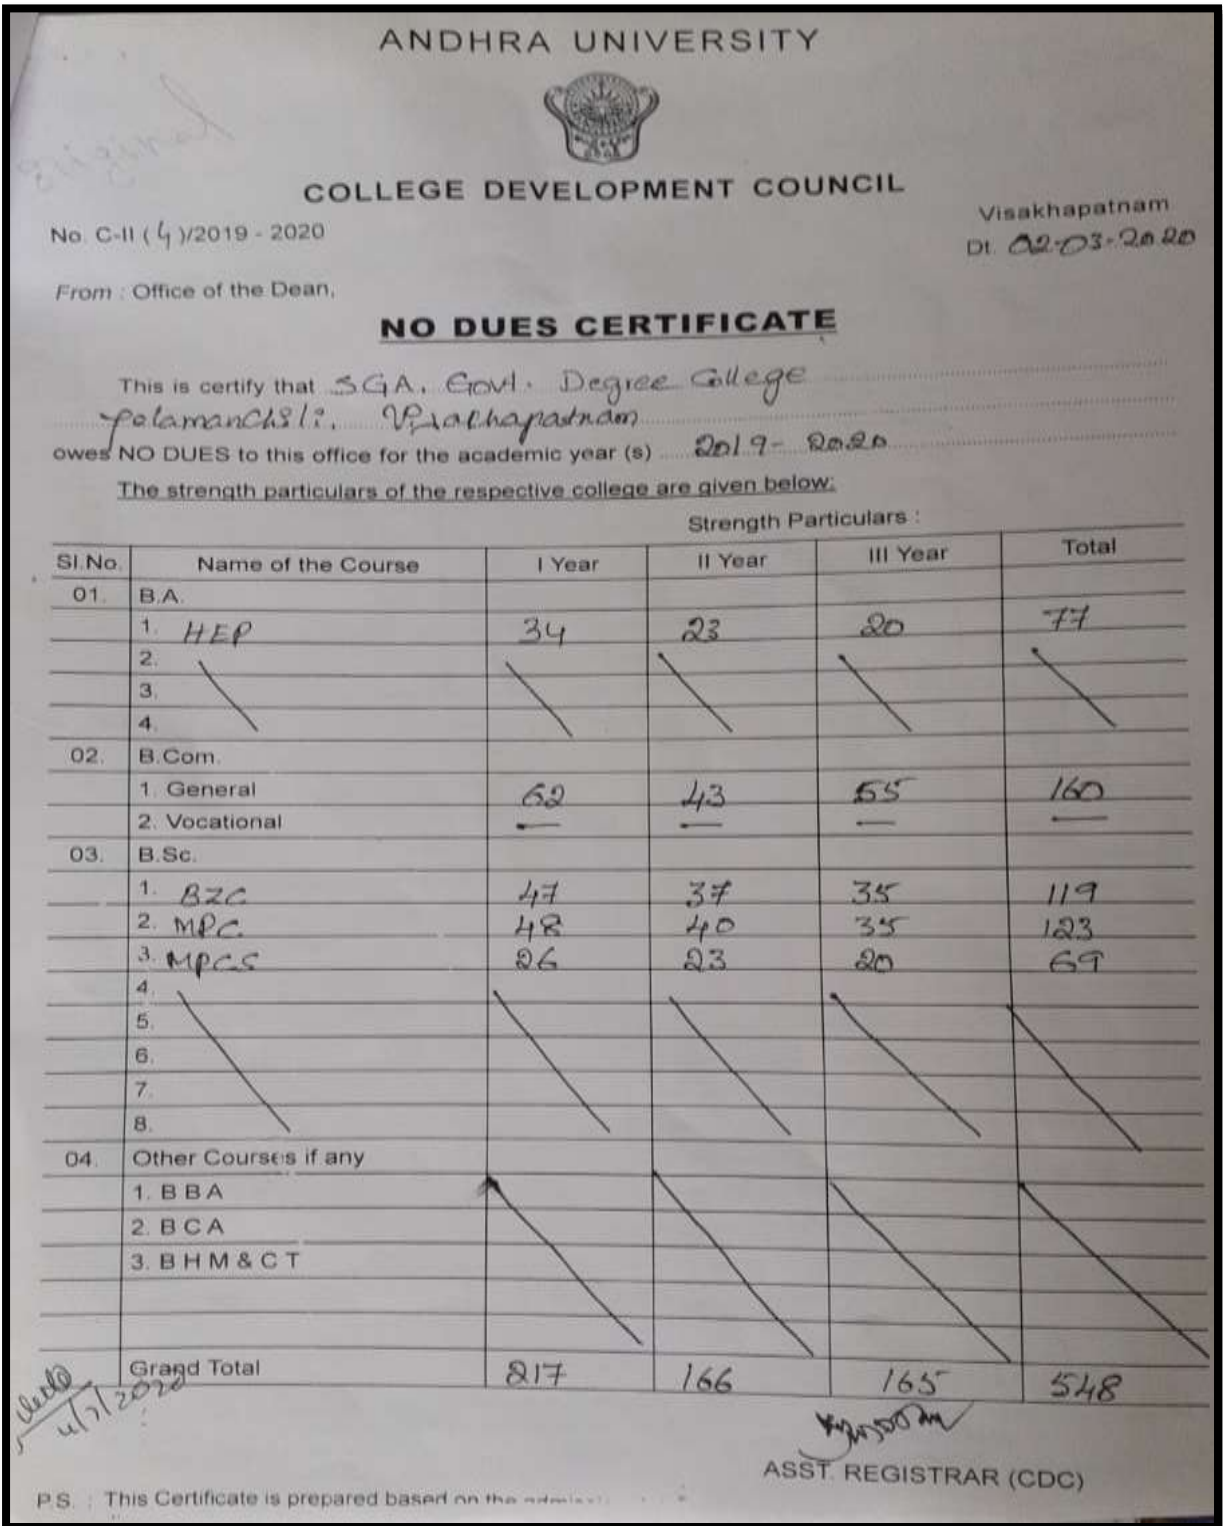 ANDHRA UNIVERSITY
original
COLLEGE DEVELOPMENT COUNCIL
Visakhapatnam
No. C-II (4)/2019 - 2020
Dt. 02-03-2020
From : Office of the Dean,
NO DUES CERTIFICATE
This is certify that SGA. Govt. Degree College
Yelamanchili. Visakhapatnam
owes NO DUES to this office for the academic year (s) 2019-2020
The strength particulars of the respective college are given below:
Strength Particulars :
Sl.No. Name of the Course I Year II Year III Year Total
01. B.A.
1. HEP 34 23 20 77
2.
3.
4.
02. B.Com.
1. General 62 43 55 160
2. Vocational — — — —
03. B.Sc.
1. BZC 47 37 35 119
2. MPC 48 40 35 123
3. MPCS 26 23 20 69
4.
5.
6.
7.
8.
04. Other Courses if any
1. B B A
2. B C A
3. B H M & C T
Grand Total 217 166 165 548
ASST. REGISTRAR (CDC)
P.S. : This Certificate is prepared based on the